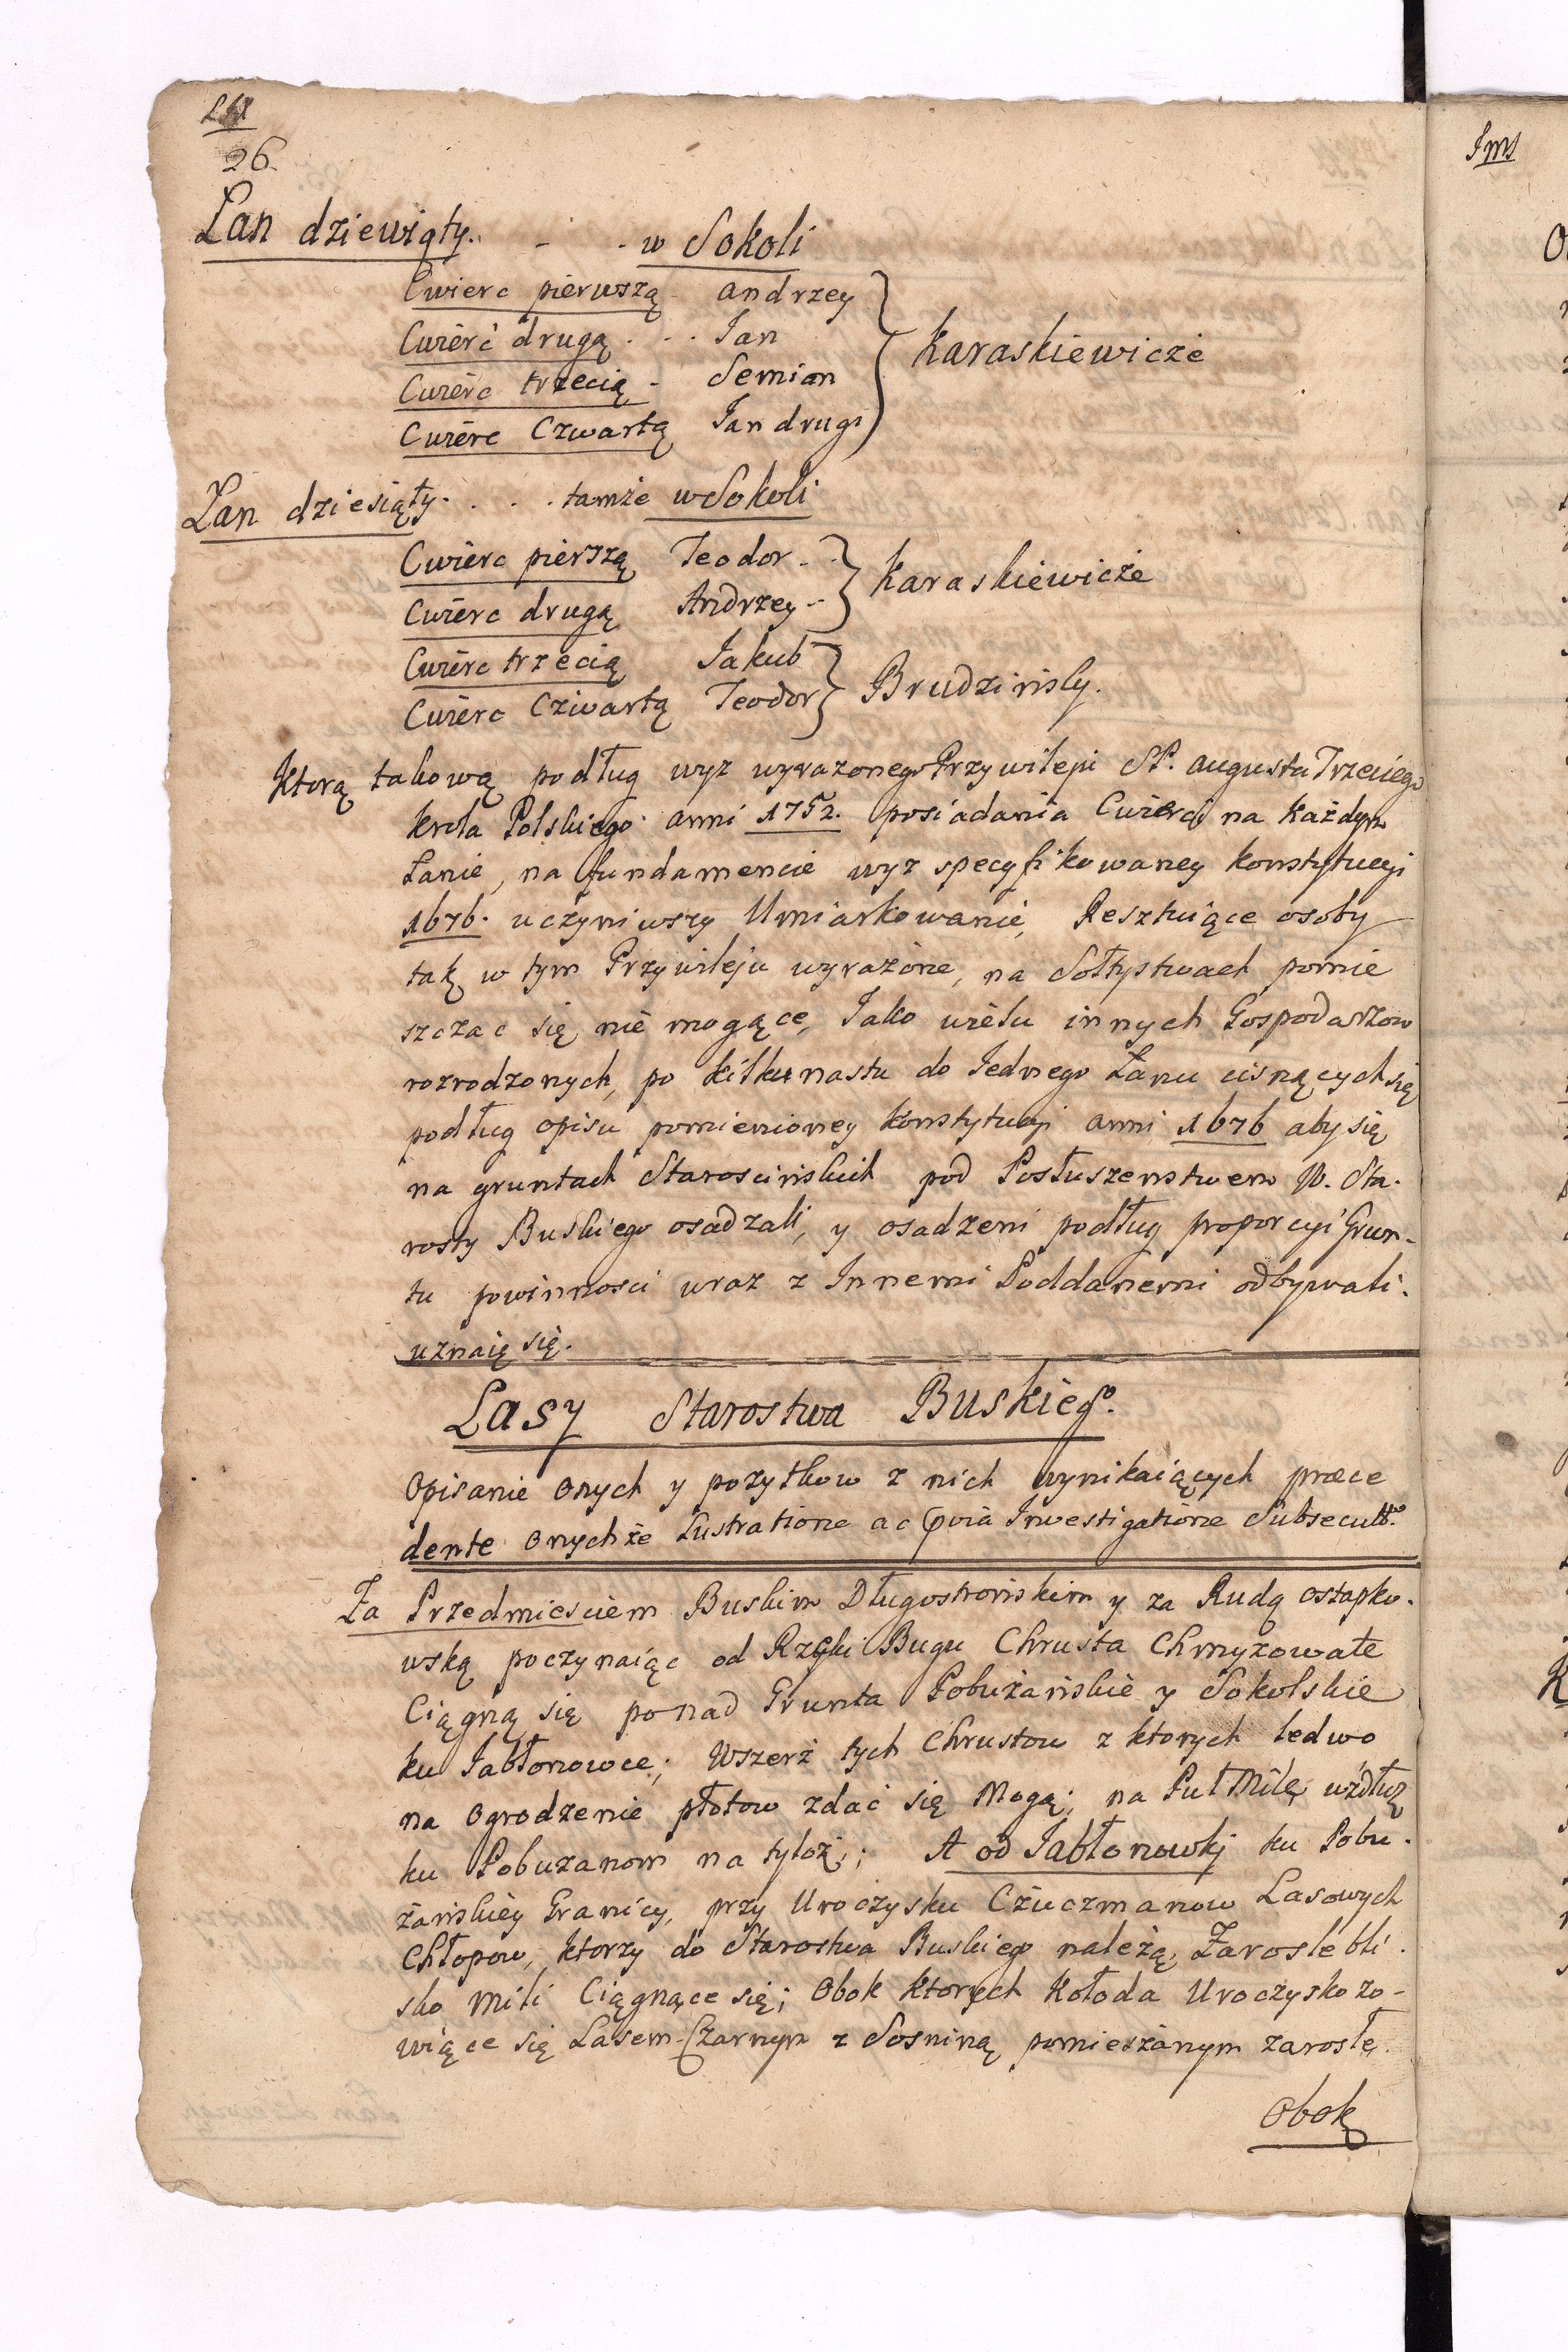 26.
Łan dziewiąty. - - w Sokoli
Cwierc pierwszą Andrzey
Cwierć drugą . . . Jan
Cwierc trzecią - Semian
Cwierc Czwartą Jan drugi
Karaskiewicze
Łan dziesiąty . . . . tamże w Sokoli
Cwierc pierszą Teodor - -
Cwierc drugą Andrzey -
Karaskiewicze
Cwierc trzecią Jakub
Cwierc Czwartą Teodor
Brudzinscy.
Ktorą takową podług wyz wyrazonego Przywileju SP. Augusta Trzeciego
krola Polskiego anni 1752. posiadania Cwierci na każdym
Łanie, na fundamencie wyz specyfikowaney konstytucyi
1676. uczyniwszy Umiarkowanie, Resztuiące osoby
tak w tym Przywileju wyrażone, na Sołtystwach pomie
szczac się nie mogące, Jako wielu innych Gospodarzow
rozrodzonych, po kilkunastu do Jednego Łanu cisnących się
podług opisu pomienioney konstytucyi anni 1676 aby się
na gruntach Starościnskich pod Posłuszenstwem W. Sta-
rosty Buskiego osadzali, y osadzeni podług proporcyi Grun-
tu powinnosci wraz z Innemi Poddanemi odbywali.
uznaię się.
Lasy Starostwa Buskieg°.
Opisanie onych y pozytkow z nich wynikaiących præce
dente onychże Lustratione ac prævia Investigatione Subsecutt.
Za Przedmiesciem Buskim Długostrońskim y za Rudą ostapko-
wską poczynaiąc od Rzęki Bugu Chrusta Chmyzowate
Ciągną się ponad Grunta Pobużańskie y Sokolskie
ku Jabłonowce; Wszerż tych Chrustow z ktorych ledwo
na Ogrodzenie płotow zdać się Mogą; na Puł Milę wzdłuż
ku Pobuzanom na tyloż; A od Jabłonowkj ku Pobu-
żańskiey Granicy, przy Uroczysku Cżuczmanow Lasowych
Chłopow, ktorzy do Starostwa Buskiego należą, Zarosle bli-
sko Mili Ciągnące się; Obok ktorych Kołoda Uroczysko zo-
wiące się Lasem Czarnym z Sosniną pomieszanym zarosłe.
Obok